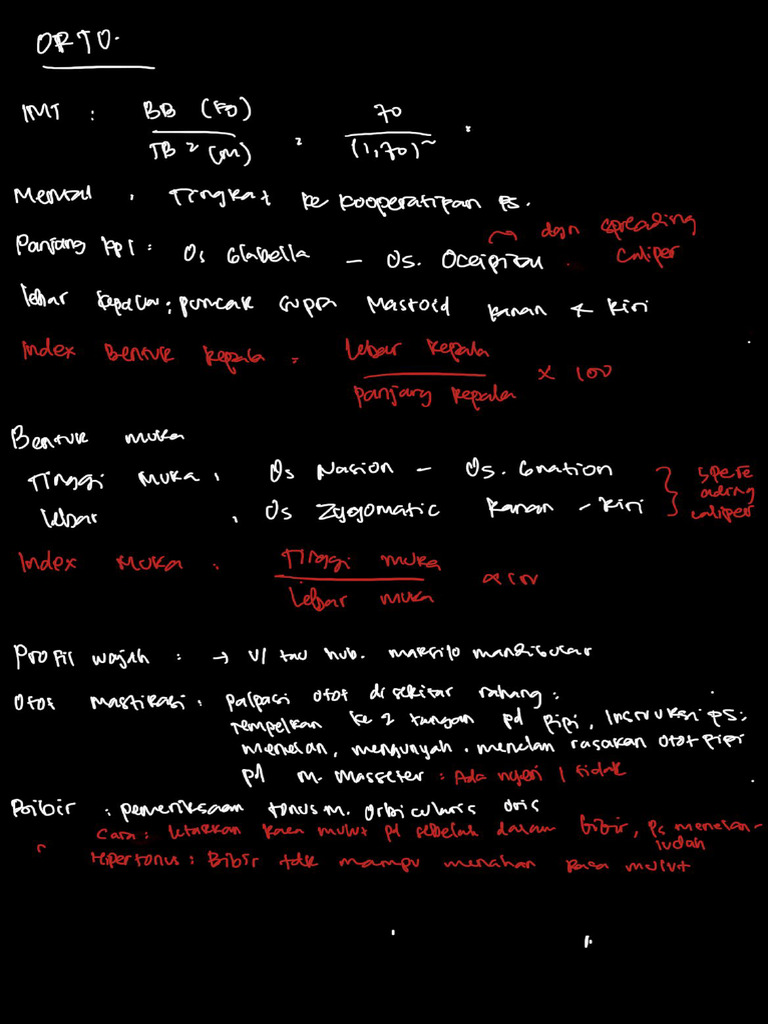 ORTO.
IMT : BB (KG) / TB² (m) : 70 / (1,70)²
Mental : Tingkat ke kooperatipan ps.
Panjang kpl : Os Glabella – Os. Occipital → dgn spreading caliper
lebar kepala : puncak supra Mastoid kanan & kiri
Index Bentuk kepala = lebar kepala / panjang kepala × 100
Bentuk muka
Tinggi muka : Os Nasion – Os. Gnation
lebar : Os Zygomatic kanan – kiri } spreading caliper
Index muka : Tinggi muka / lebar muka × 100
Profil wajah : → u/ tau hub. maksilo mandibular
Otot mastikasi : palpasi otot di sekitar rahang :
tempelkan ke 2 tangan pd pipi, Instruksi ps:
menelan, mengunyah. menelan rasakan otot pipi
pd m. Masseter : Ada nyeri / tidak
Bibir : pemeriksaan tonus m. orbicularis oris
Cara : letakkan kaca mulut pd sebelah dalam bibir, ps menelan ludah
Hipertonus : Bibir tdk mampu menahan kaca mulut